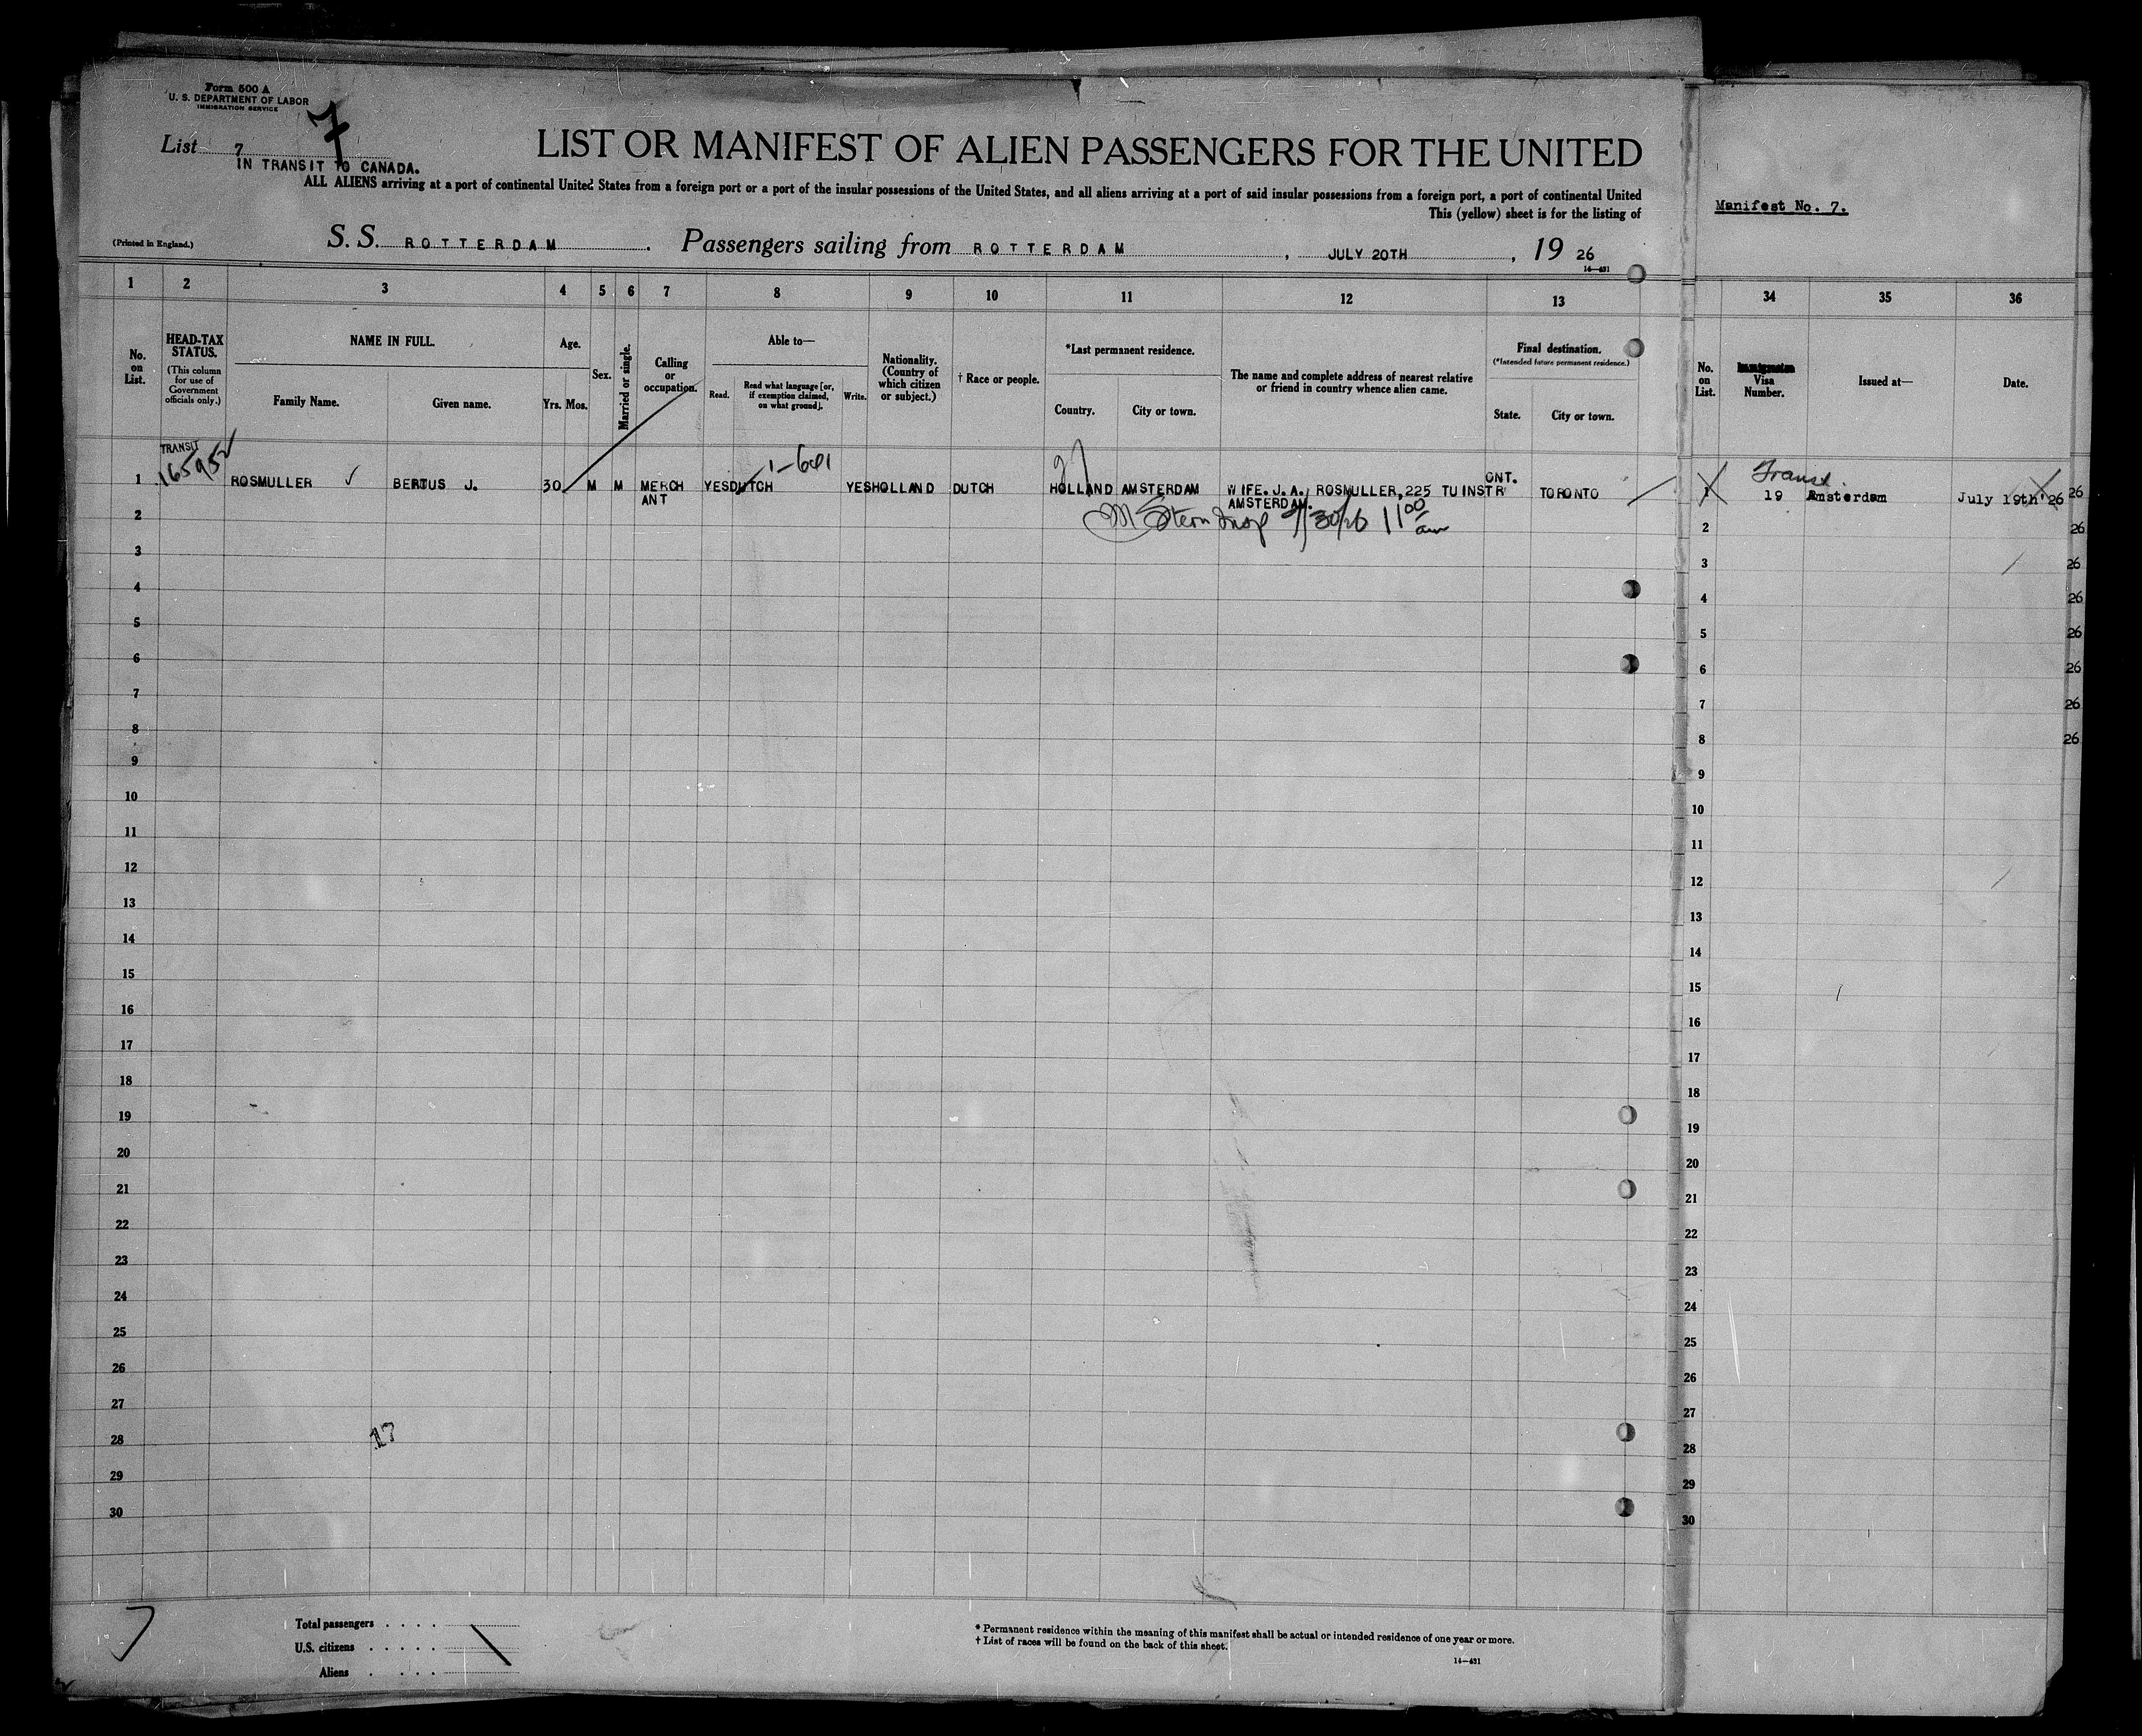 Form 500 A
U. S. DEPARTMENT OF LABOR
IMMIGRATION SERVICE
7
List 7
IN TRANSIT TO CANADA.
LIST OR MANIFEST OF ALIEN PASSENGERS FOR THE UNITED
ALL ALIENS arriving at a port of continental United States from a foreign port or a port of the insular possessions of the United States, and all aliens arriving at a port of said insular possessions from a foreign port, a port of continental United
This (yellow) sheet is for the listing of
Manifest No. 7.
(Printed in England.)
S. S. ROTTERDAM. Passengers sailing from ROTTERDAM, JULY 20TH, 19 26
14—431
1 2 3 4 5 6 7 8 9 10 11 12 13 34 35 36
No. on List.
HEAD-TAX STATUS.
(This column for use of Government officials only.)
NAME IN FULL.
Family Name. Given name.
Age.
Yrs. Mos.
Sex.
Married or single.
Calling or occupation.
Able to—
Read. Read what language [or, if exemption claimed, on what ground]. Write.
Nationality. (Country of which citizen or subject.)
† Race or people.
*Last permanent residence.
Country. City or town.
The name and complete address of nearest relative or friend in country whence alien came.
Final destination.
(*Intended future permanent residence.)
State. City or town.
No. on List.
Visa Number.
Issued at—
Date.
TRANSIT
1 ROSMULLER ✓ BERTUS J. 30 M M MERCH YES DUTCH YES HOLLAND DUTCH HOLLAND AMSTERDAM WIFE. J. A. ROSMULLER, 225 TUINSTR ONT. TORONTO 1 19 Amsterdam July 19th'26 26
ANT AMSTERDAM.
Transit
M Stern Insp 7/30/26 11 00 am
2 2 26
3 3 26
4 4 26
5 5 26
6 6 26
7 7 26
8 8 26
9 9
10 10
11 11
12 12
13 13
14 14
15 15
16 16
17 17
18 18
19 19
20 20
21 21
22 22
23 23
24 24
25 25
26 26
27 27
17
28 28
29 29
30 30
7
Total passengers . . . .
U.S. citizens . . . . .
Aliens . . . .
* Permanent residence within the meaning of this manifest shall be actual or intended residence of one year or more.
† List of races will be found on the back of this sheet.
14—431